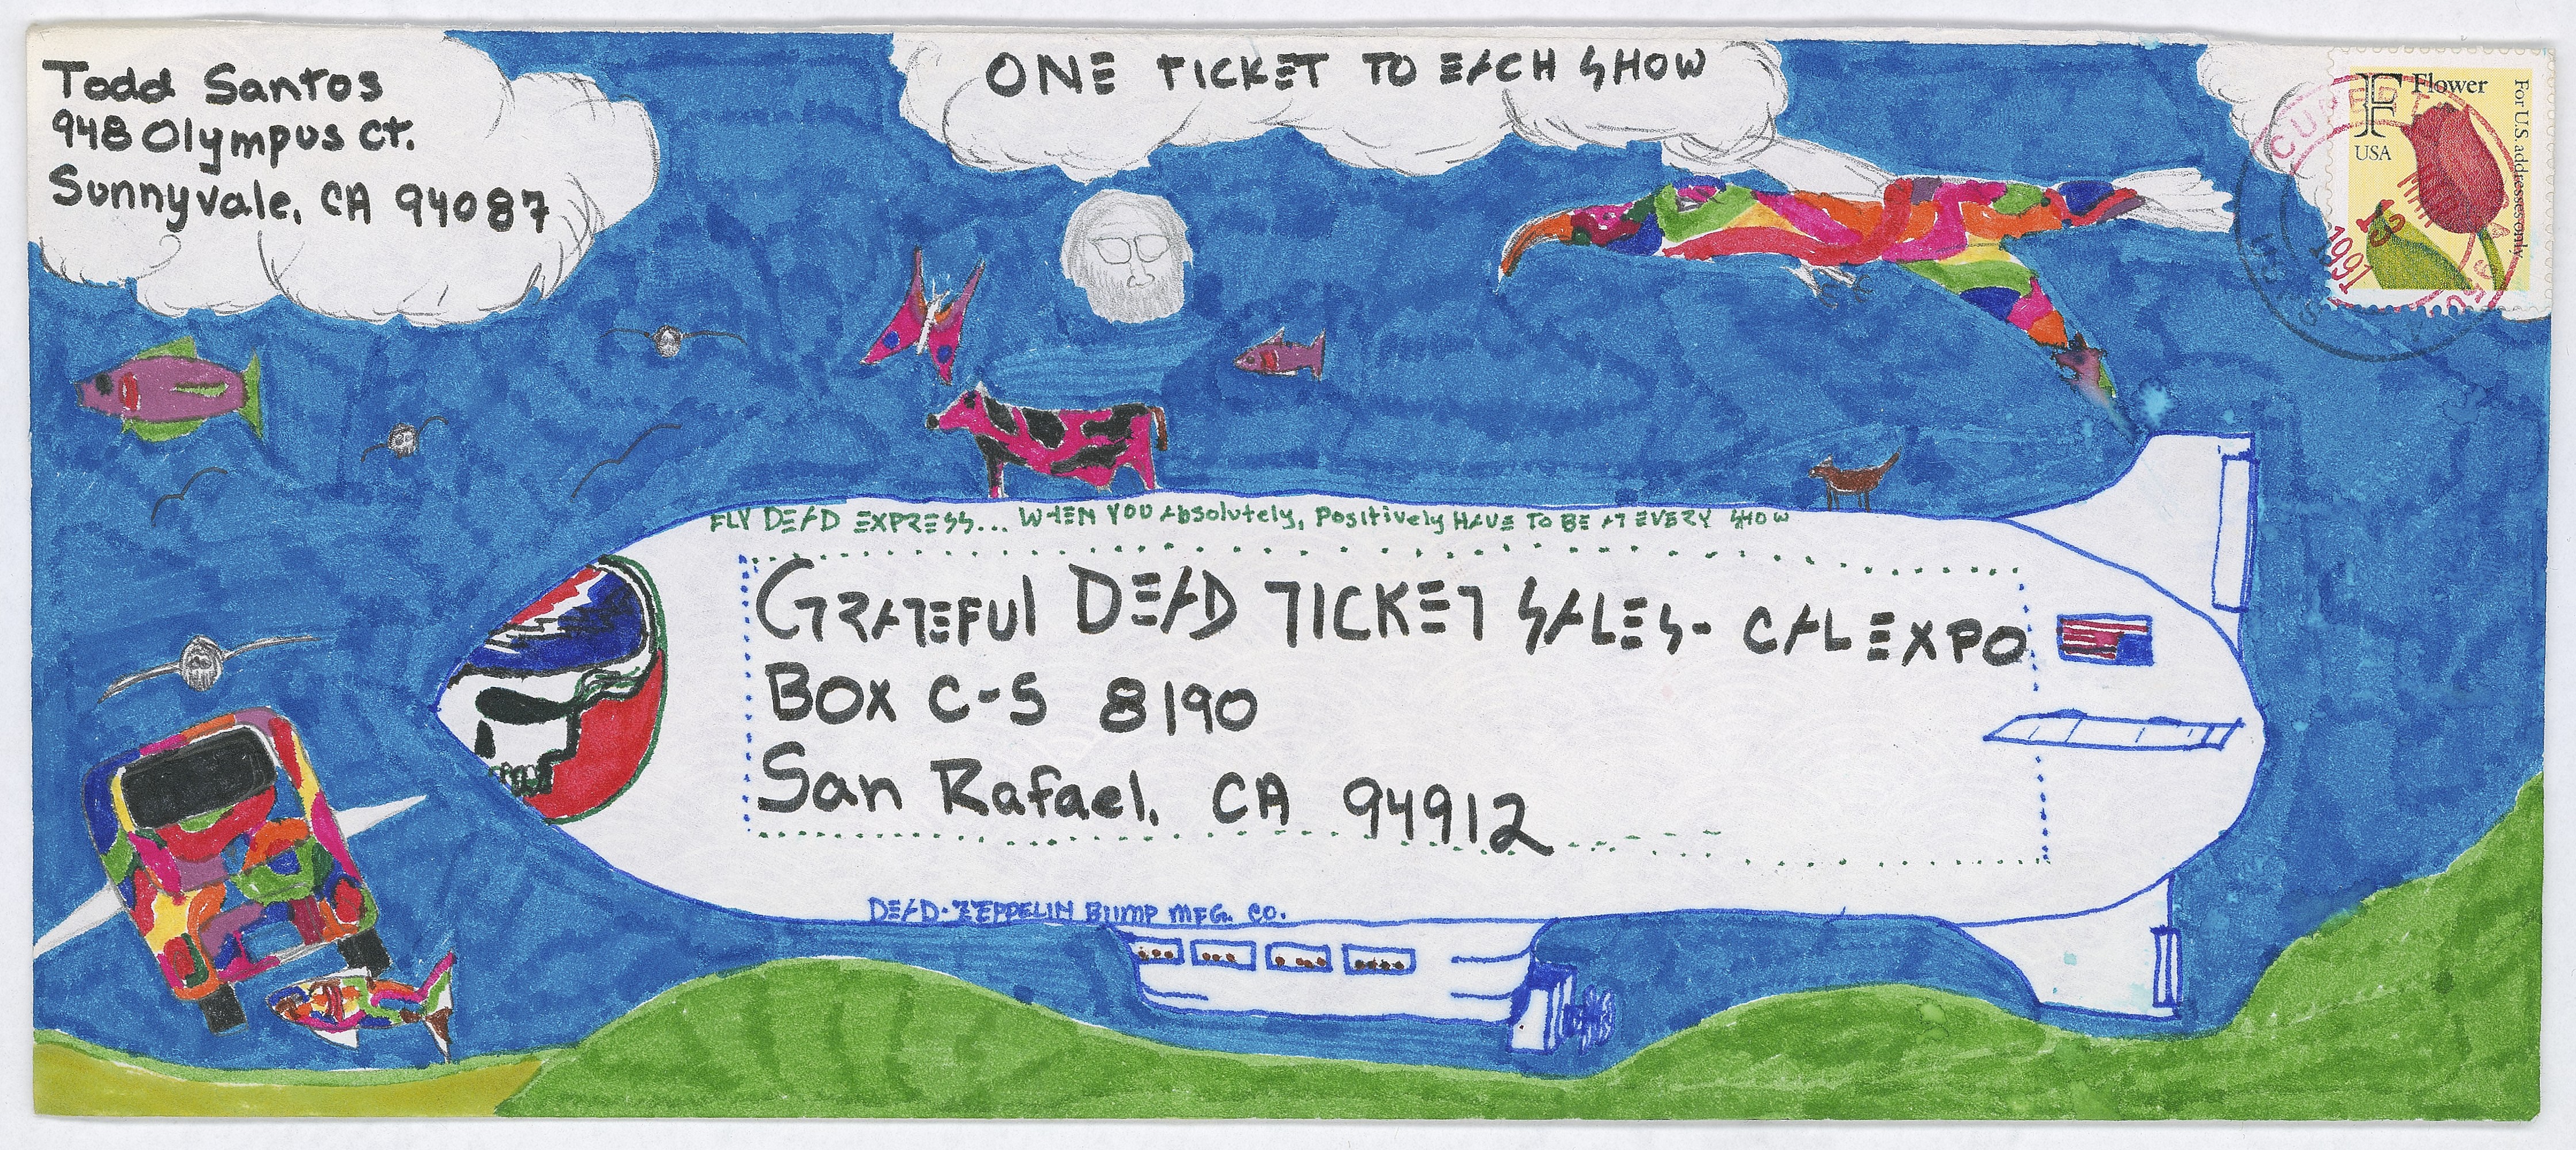 Todd Santos
948 Olympus Ct.
Sunnyvale, CA 94087
ONE TICKET TO EACH SHOW
F Flower
USA
For U.S. addresses only
CUPERT
1991
FLY DEAD EXPRESS... WHEN YOU Absolutely, Positively HAVE TO BE AT EVERY SHOW
GRATEFUL DEAD TICKET SALES- CAL EXPO
BOX C-S 8190
San Rafael, CA 94912
DEAD-ZEPPELIN BLIMP MFG. CO.